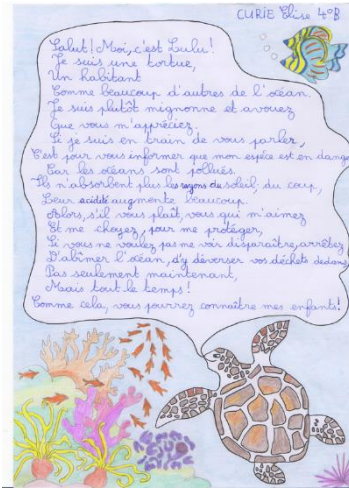 CURIE Elise 4°B
Salut! Moi, c'est Lulu!
Je suis une tortue,
Un habitant
Comme beaucoup d'autres de l'océan.
Je suis plutôt mignonne et avouez
Que vous m'appréciez,
Si je suis en train de vous parler,
C'est pour vous informer que mon espèce est en danger
Car les océans sont pollués.
Ils n'absorbent plus les rayons de soleil, du coup,
Leur acidité augmente beaucoup.
Alors, s'il vous plaît, vous qui m'aimez
Et me choyez, pour me protéger,
Si vous ne voulez pas me voir disparaître, arrêtez
D'abîmer l'océan, d'y déverser vos déchets dedans,
Pas seulement maintenant,
Mais tout le temps!
Comme cela, vous pourrez connaître mes enfants!